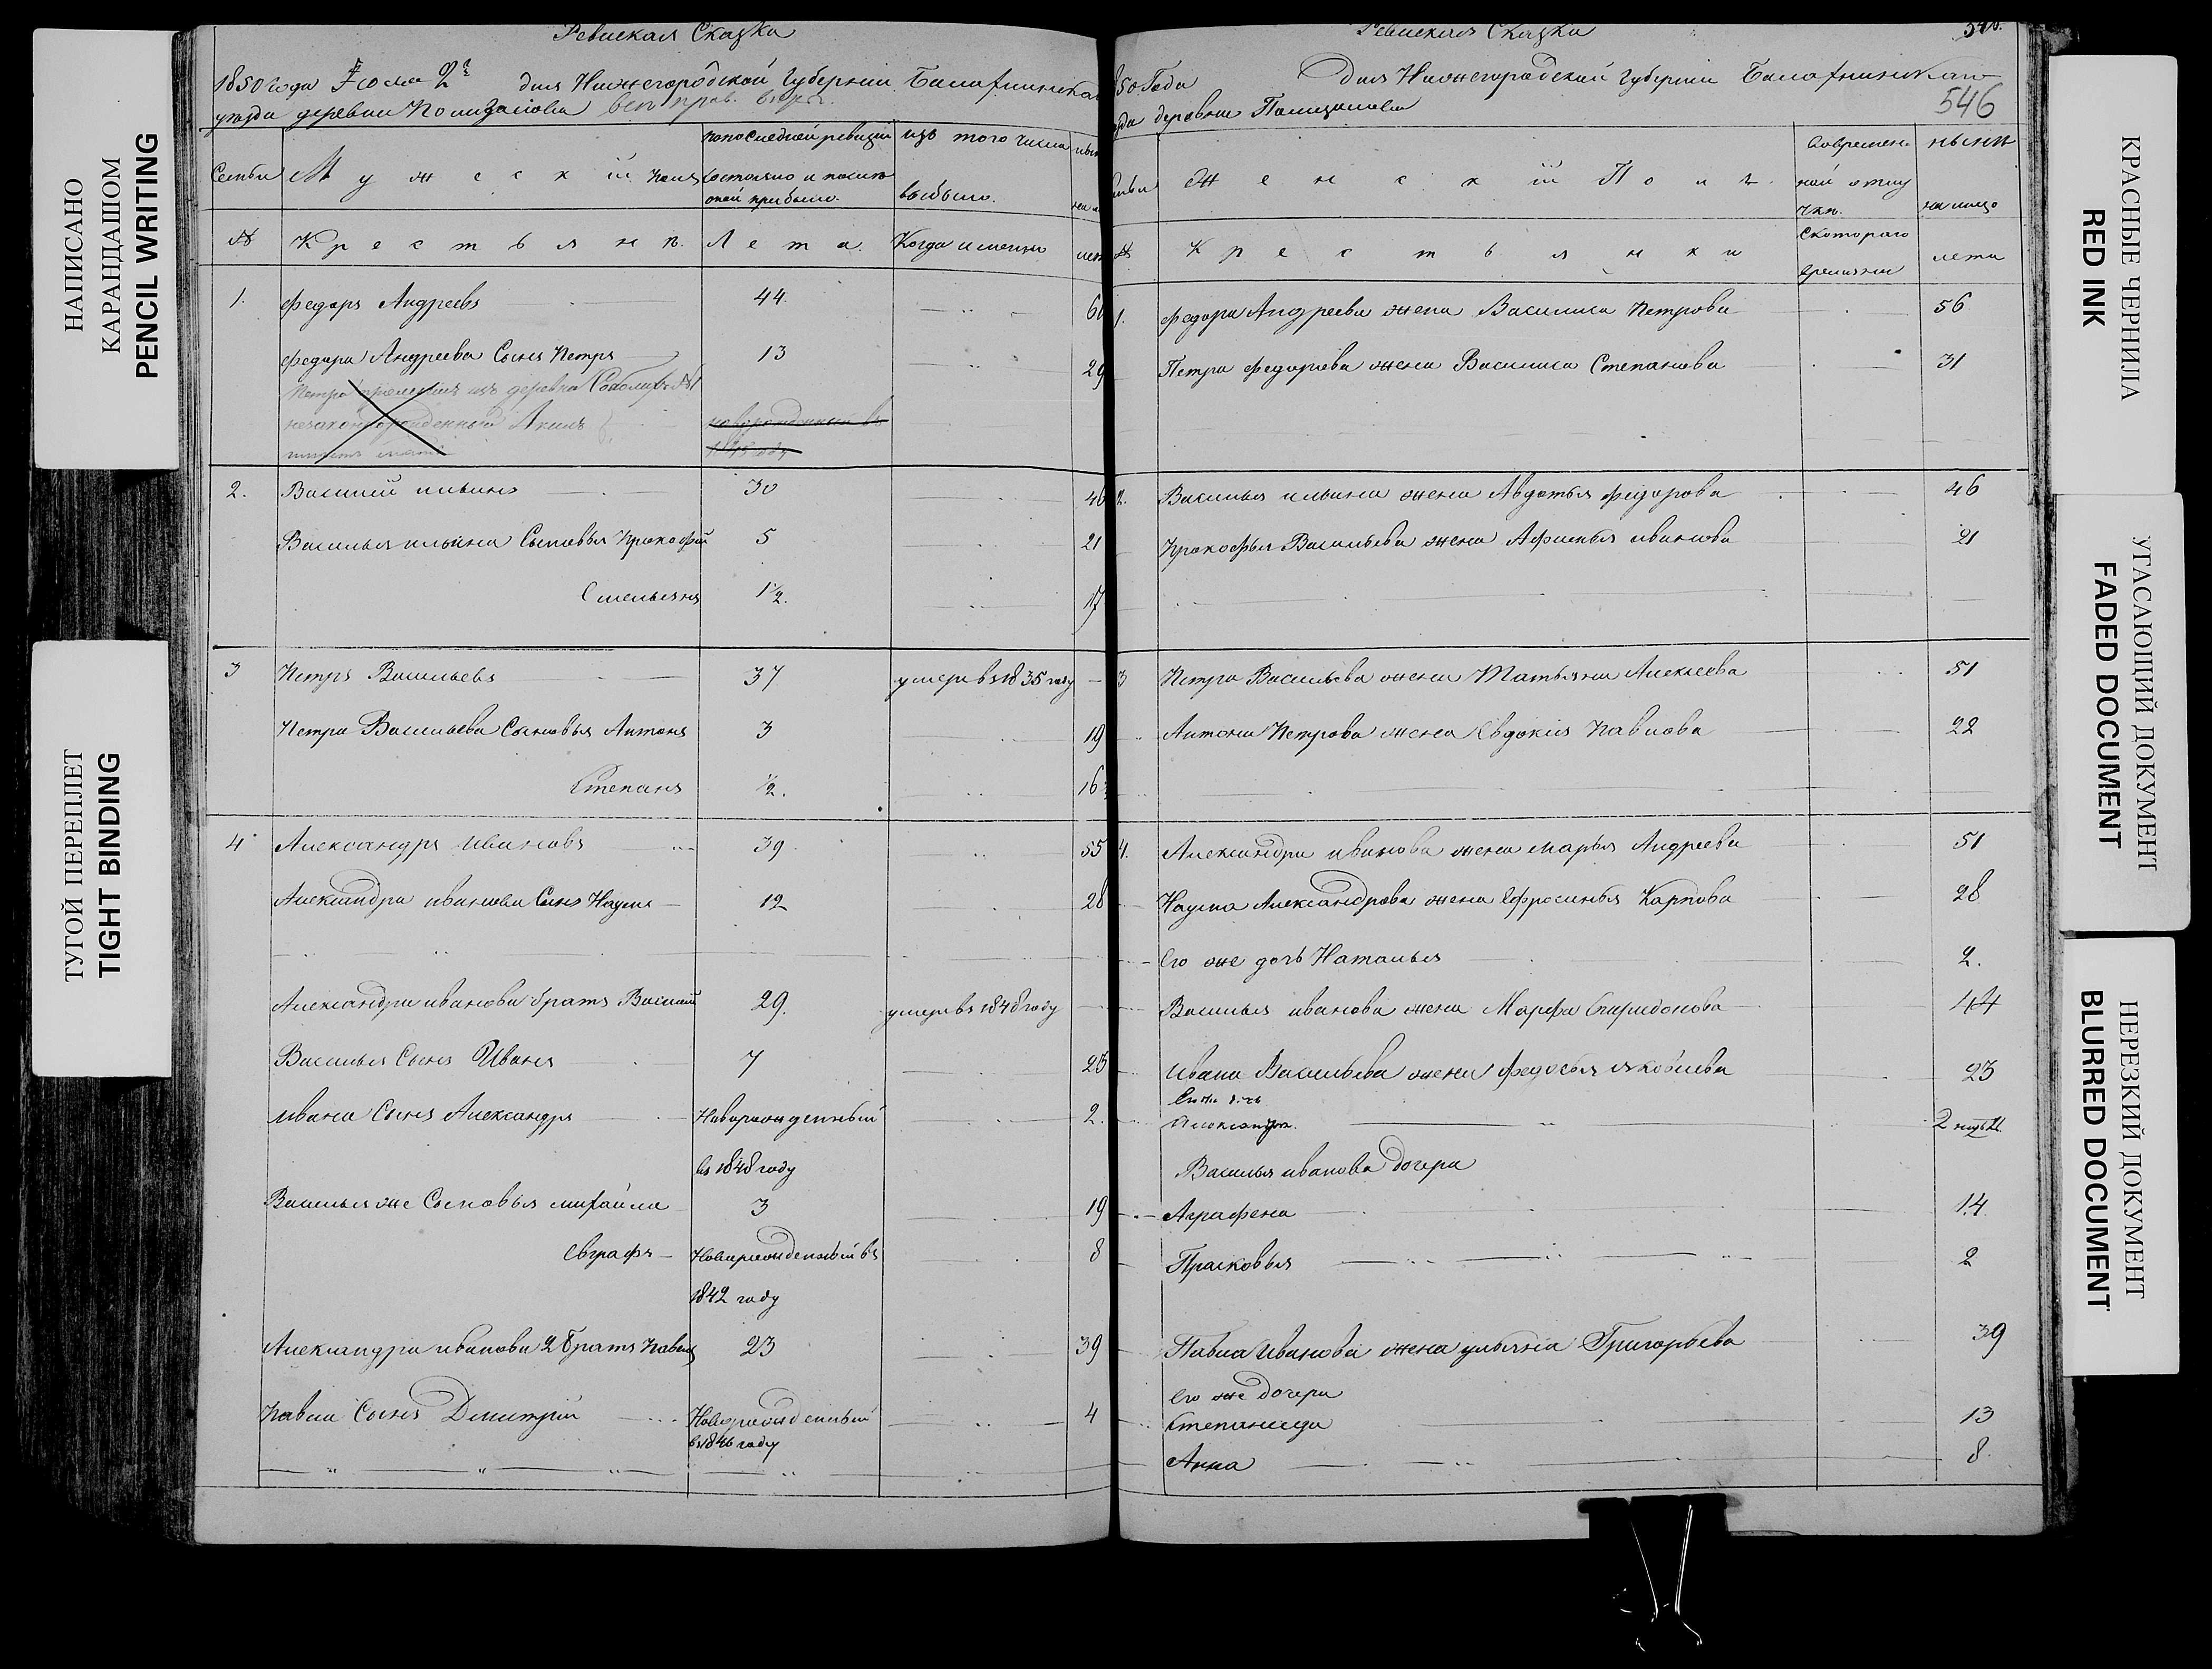 НАПИСАНО
КАРАНДАШОМ
PENCIL WRITING
ТУГОЙ ПЕРЕПЛЕТ
TIGHT BINDING
Ревиская Сказка
1850 года Июля 2 дня Нижегородской Губернии
уезда деревни
Семьи Мужеский полъ по последней ревизии состояло и после оной прибыло. изъ того числа выбыло.
№ Крестьянъ. Лета. Когда именно
1. Федоръ Андреевъ 44.
Федора Андреева Сынъ Петръ 13 29
новорожденный въ
2. Василий ильинъ 30 46
Василья ильина Сыновья Прокофий 5 21
Емельянъ 1 1/2. 17
3 Петръ Васильевъ 37 умеръ въ 1835 году
Петра Васильева Сыновья Антонъ 3 19
Степанъ 1/2. 16
4 Александръ ивановъ 39 55
Александра иванова Сынъ Наумъ 12 28
Александра иванова братъ Василий 29. умеръ въ 1848 году
Василья Сынъ Иванъ 7
Ивана Сынъ Александръ Новорожденный 2.
въ 1848 году
Василья же Сыновья михайла 3 19
евграфъ Новорожденный въ 8
1842 году
Александра иванова 2 братъ Павелъ 23 39
Павла Сынъ Димитрий Новорожденный 4
въ 1846 году
Ревиская Сказка
50 Года Дня Нижегородской Губернии
деревни
546
Женскій Полъ. ныне
Крестьянки на лицо
Скотораго времяни лета
1. Федора Андреева жена Василиса Петрова 56
Петра Федорова жена Василиса Степанова 31
2. Василья ильина жена Авдотья федорова 46
Прокофья Васильева жена Афимья иванова 21
3 Петра Васильева жена Татьяна Алексеева 51
Антона Петрова жена Евдокия Павлова 22
4. Александра иванова жена марья Андреева 51
Наума Александрова жена Ефросинья Карпова 28
Его же дочь Наталья 2.
Василья иванова жена Марфа Спиридонова 44
Ивана Васильева жена федосья яковлева 23
Его же дочь
Василья иванова дочери
Аграфена 14
Прасковья 2
Павла Иванова жена ульяна Григорьева 39
Его же дочери
Степанида 13
Анна 8
КРАСНЫЕ ЧЕРНИЛА
RED INK
УГАСАЮЩИЙ ДОКУМЕНТ
FADED DOCUMENT
НЕРЕЗКИЙ ДОКУМЕНТ
BLURRED DOCUMENT